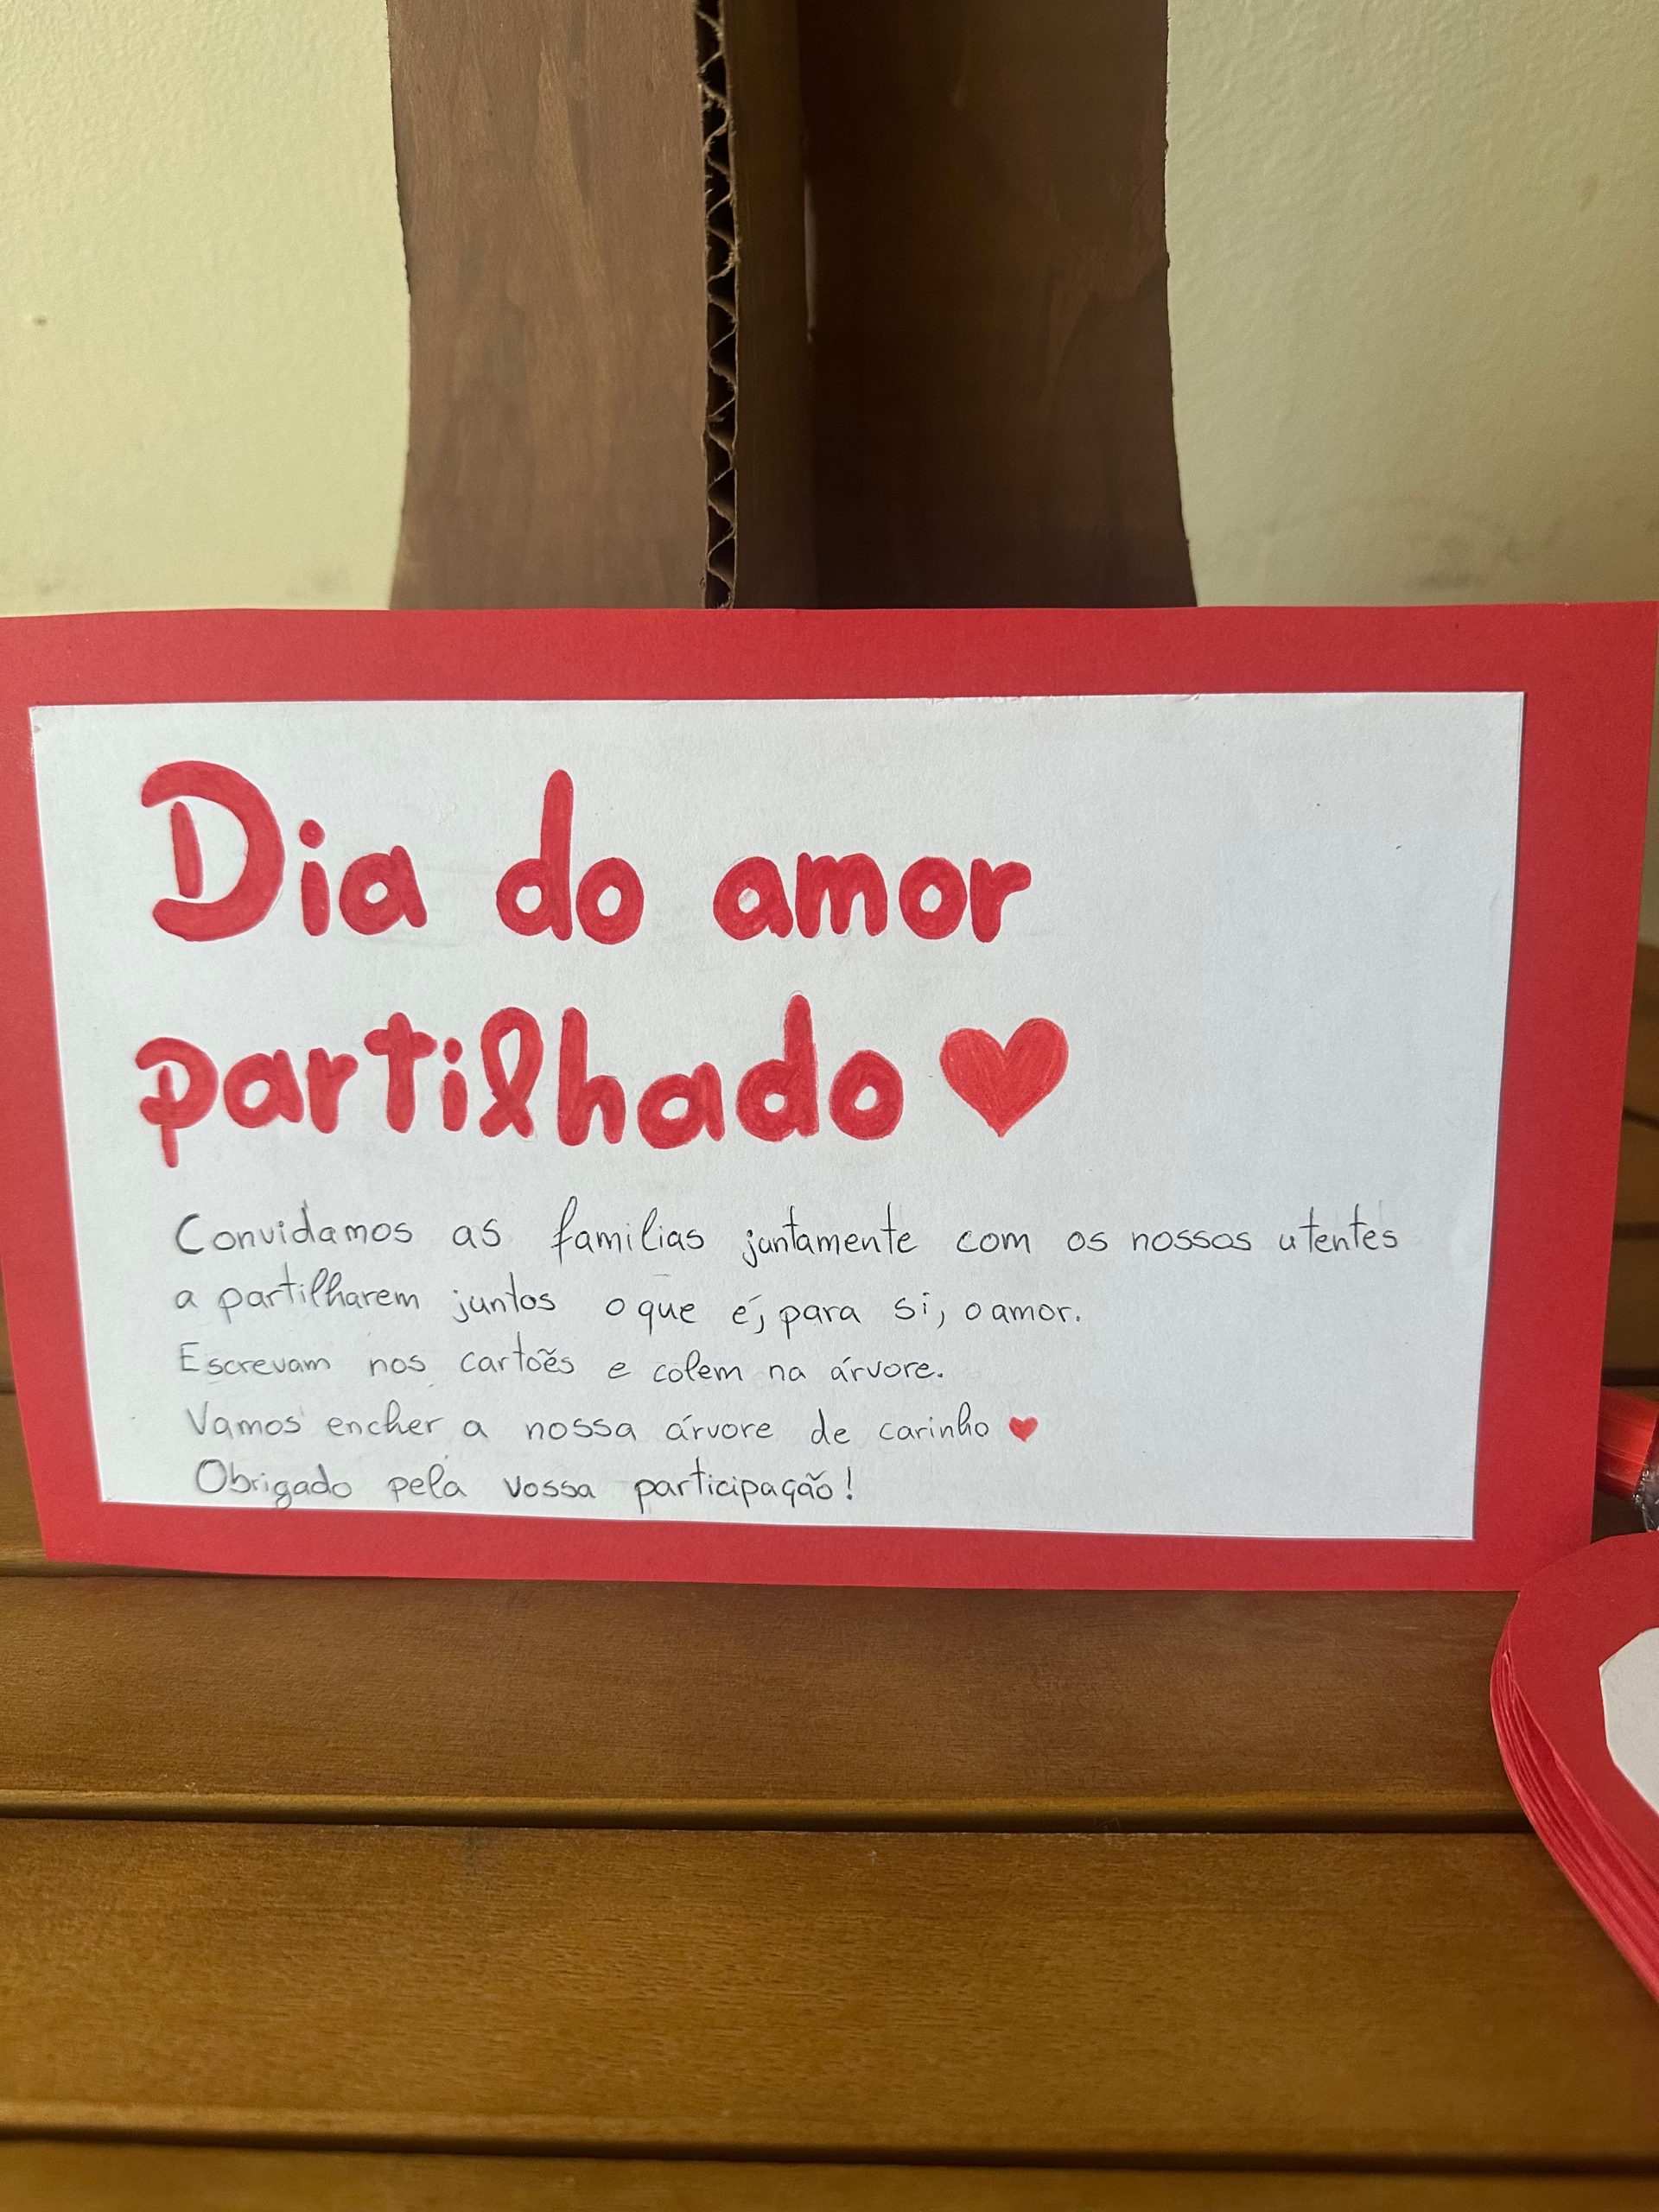 Dia do amor
partilhado ❤
Convidamos as familias juntamente com os nossos utentes
a partilharem juntos o que é, para si, o amor.
Escrevam nos cartões e colem na árvore.
Vamos encher a nossa árvore de carinho ❤
Obrigado pela vossa participação!